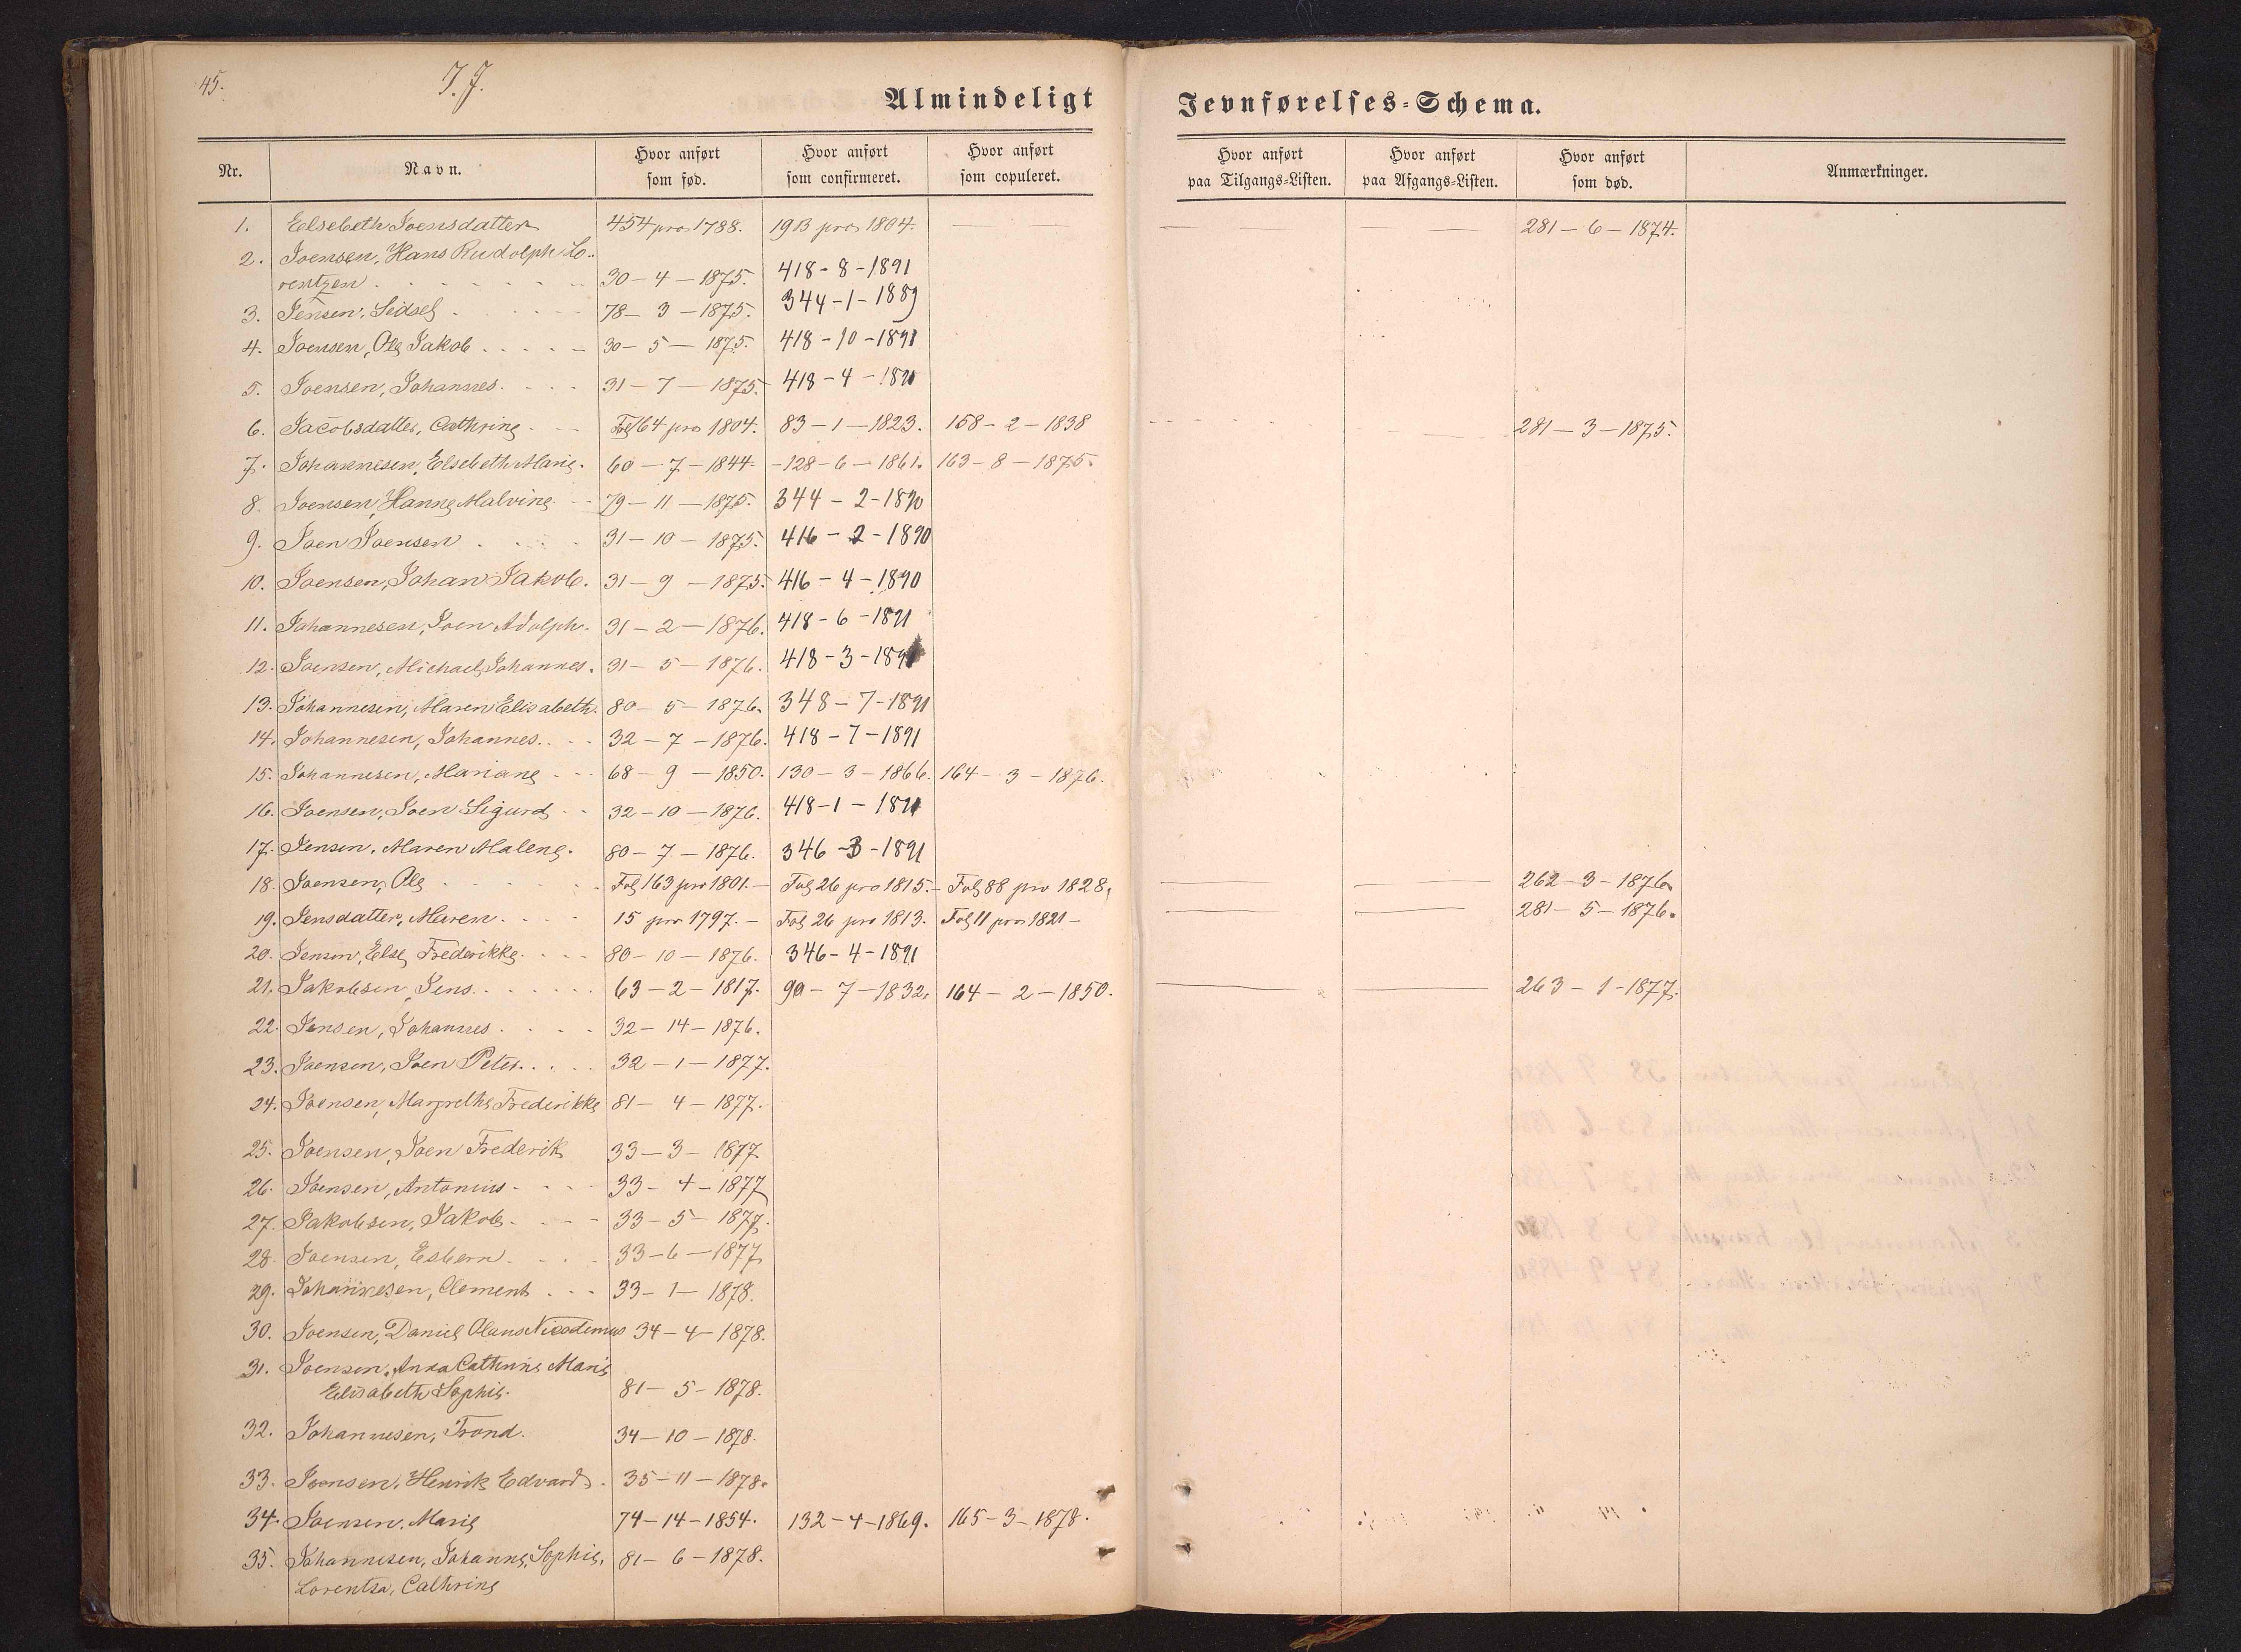 45.
J. J.
Almindeligt Jevnførelses-Schema.
Nr. Navn. Hvor anført som fød. Hvor anført som confirmeret. Hvor anført som copuleret. Hvor anført paa Tilgangs-Listen. Hvor anført paa Afgangs-Listen. Hvor anført som død. Anmærkninger.
1. Elsebeth Joensdatter 454 pro 1788. 19B pro 1804. — — — — — — 281 - 6 - 1874.
2. Joensen, Hans Rudolph Lo-
rentzen 30 - 4 - 1875. 418 - 8 - 1891
3. Jensen, Sidsel 78 - 3 - 1875. 344 - 1 - 1889
4. Joensen, Ole Jakob 30 - 5 - 1875. 418 - 10 - 1891
5. Joensen, Johannes. 31 - 7 - 1875. 418 - 4 - 1891
6. Jacobsdatter, Cathrine Fol 164 pro 1804. 83 - 1 - 1823. 158 - 2 - 1838 281 - 3 - 1875.
7. Johannesen, Elsebeth Marie. 60 - 7 - 1844. 128 - 6 - 1861. 163 - 8 - 1875.
8. Joensen, Hanne Malvine 79 - 11 - 1875. 344 - 2 - 1890
9. Joen Joensen 31 - 10 - 1875. 416 - 2 - 1890
10. Joensen, Johan Jakob. 31 - 9 - 1875. 416 - 4 - 1890
11. Johannesen, Joen Adolph. 31 - 2 - 1876. 418 - 6 - 1891
12. Joensen, Michael Johannes. 31 - 5 - 1876. 418 - 3 - 1891
13. Johannesen, Maren Elisabeth. 80 - 5 - 1876. 348 - 7 - 1891
14. Johannesen, Johannes. 32 - 7 - 1876. 418 - 7 - 1891
15. Johannesen, Mariane 68 - 9 - 1850. 130 - 3 - 1866. 164 - 3 - 1876.
16. Joensen, Joen Sigurd 32 - 10 - 1876. 418 - 1 - 1891
17. Jensen, Maren Malene. 80 - 7 - 1876. 346 - 3 - 1891
18. Joensen, Ole Fol 163 pro 1801. Fol 26 pro 1815. Fol 88 pro 1828. — — 262 - 3 - 1876.
19. Jensdatter, Maren. 15 pro 1797. Fol 26 pro 1813. Fol 11 pro 1821 — — 281 - 5 - 1876.
20. Jensen, Else Frederikke. 80 - 10 - 1876. 346 - 4 - 1891
21. Jakobsen, Jens. 63 - 2 - 1817. 90 - 7 - 1832. 164 - 2 - 1850. — — 263 - 1 - 1877.
22. Jensen, Johannes 32 - 14 - 1876.
23. Joensen, Joen Peter. 32 - 1 - 1877.
24. Joensen, Margrethe Frederikke 81 - 4 - 1877.
25. Joensen, Joen Frederik 33 - 3 - 1877
26. Joensen, Antonius 33 - 4 - 1877
27. Jakobsen, Jakob. 33 - 5 - 1877.
28. Joensen, Esbern. 33 - 6 - 1877
29. Johannesen, Clement 33 - 1 - 1878.
30. Joensen, Daniel Olaus Nicodemus 34 - 4 - 1878.
31. Joensen, Anna Cathrine Marie
Elisabeth Sophie. 81 - 5 - 1878.
32. Johannesen, Trond. 34 - 10 - 1878.
33. Joensen, Henrik Edvard. 35 - 11 - 1878.
34. Joensen, Marie 74 - 14 - 1854. 132 - 4 - 1869. 165 - 3 - 1878.
35. Johannesen, Johanne, Sophie, 81 - 6 - 1878.
Lorentza, Cathrine